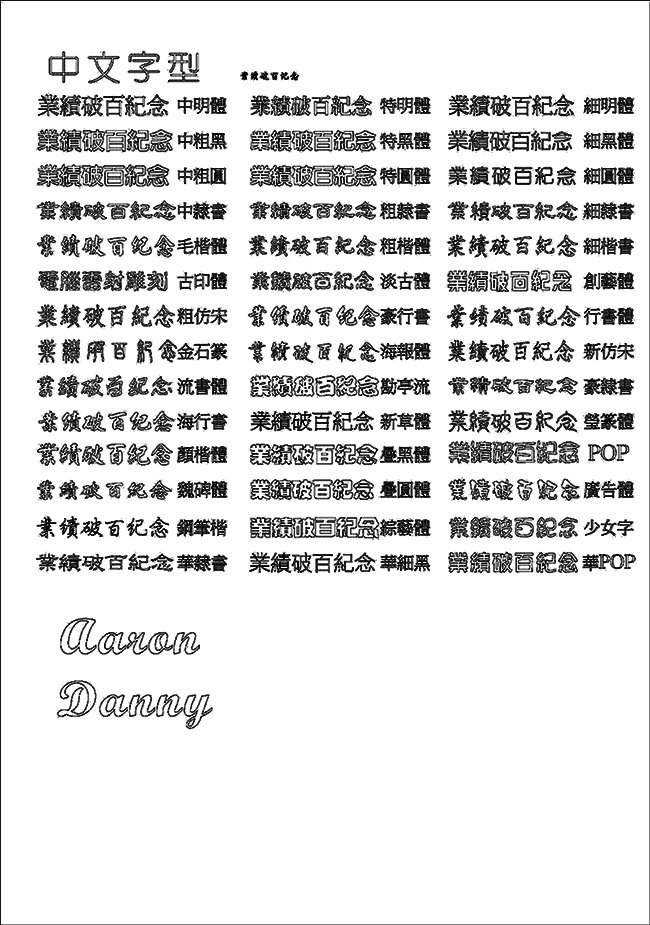 中文字型 業績破百紀念
業績破百紀念 中明體 業績破百紀念 特明體 業績破百紀念 細明體
業績破百紀念 中粗黑 業績破百紀念 特黑體 業績破百紀念 細黑體
業績破百紀念 中粗圓 業績破百紀念 特圓體 業績破百紀念 細圓體
業績破百紀念 中隸書 業績破百紀念 粗隸書 業績破百紀念 細隸書
業績破百紀念 毛楷體 業績破百紀念 粗楷體 業績破百紀念 細楷書
電腦雷射雕刻 古印體 業績破百紀念 淡古體 業績破百紀念 創藝體
業績破百紀念 粗仿宋 業績破百紀念 豪行書 業績破百紀念 行書體
業績破百紀念 金石篆 業績破百紀念 海報體 業績破百紀念 新仿宋
業績破百紀念 流書體 業績破百紀念 勘亭流 業績破百紀念 豪隸書
業績破百紀念 海行書 業績破百紀念 新草體 業績破百紀念 瑩篆體
業績破百紀念 顏楷體 業績破百紀念 疊黑體 業績破百紀念 POP
業績破百紀念 魏碑體 業績破百紀念 疊圓體 業績破百紀念 廣告體
業績破百紀念 鋼筆楷 業績破百紀念 綜藝體 業績破百紀念 少女字
業績破百紀念 華隸書 業績破百紀念 華細黑 業績破百紀念 華POP
Aaron
Danny